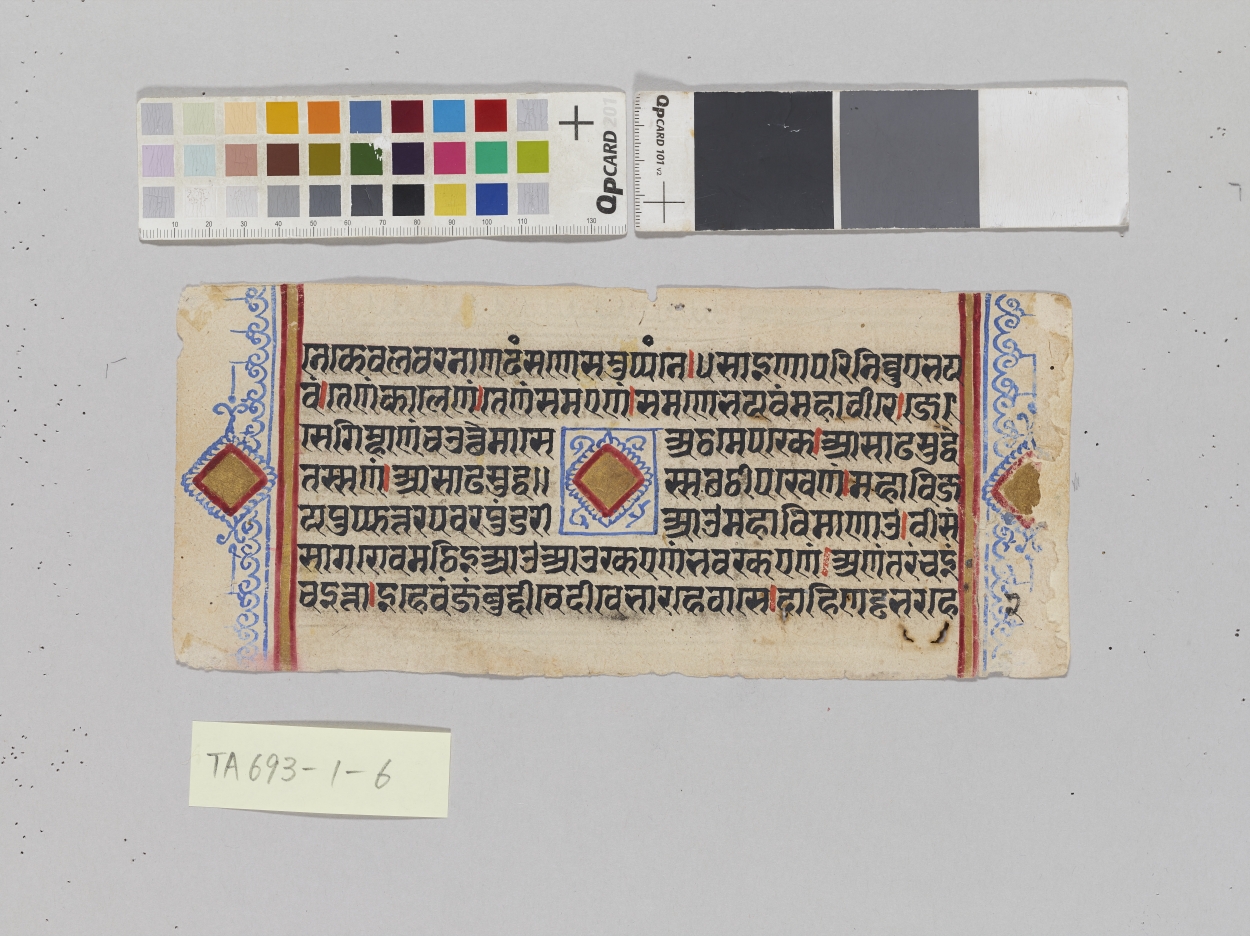 QPCARD 201
10 20 30 40 50 60 70 80 90 100 110 130
QPCARD 101 v2
केवलवरनाणदंसणे समुप्पंने।॥साइणा परिनिव्वुए भय
वं।तेणं कालेणं।तेणं समएणं।समणे भयवं महावीरे।जे
से गिम्हाणं चउत्थे मासे अठमे परके।आसाढसुद्धे
तस्स णं।आसाढसुद्ध॥ स्स छठीपरवेणं।महाविज
य पुप्फुत्तरपवरपुंडरी आउ महाविमाणाउ।वीसं
सागरोवमठिइआउ आउरकएणं भवरकएणं।अणंतरं चइं
चइत्ता।इहेव जंबुद्दीवे दीवे भारहे वासे।दाहिणड्ढभरहे
TA693-1-6